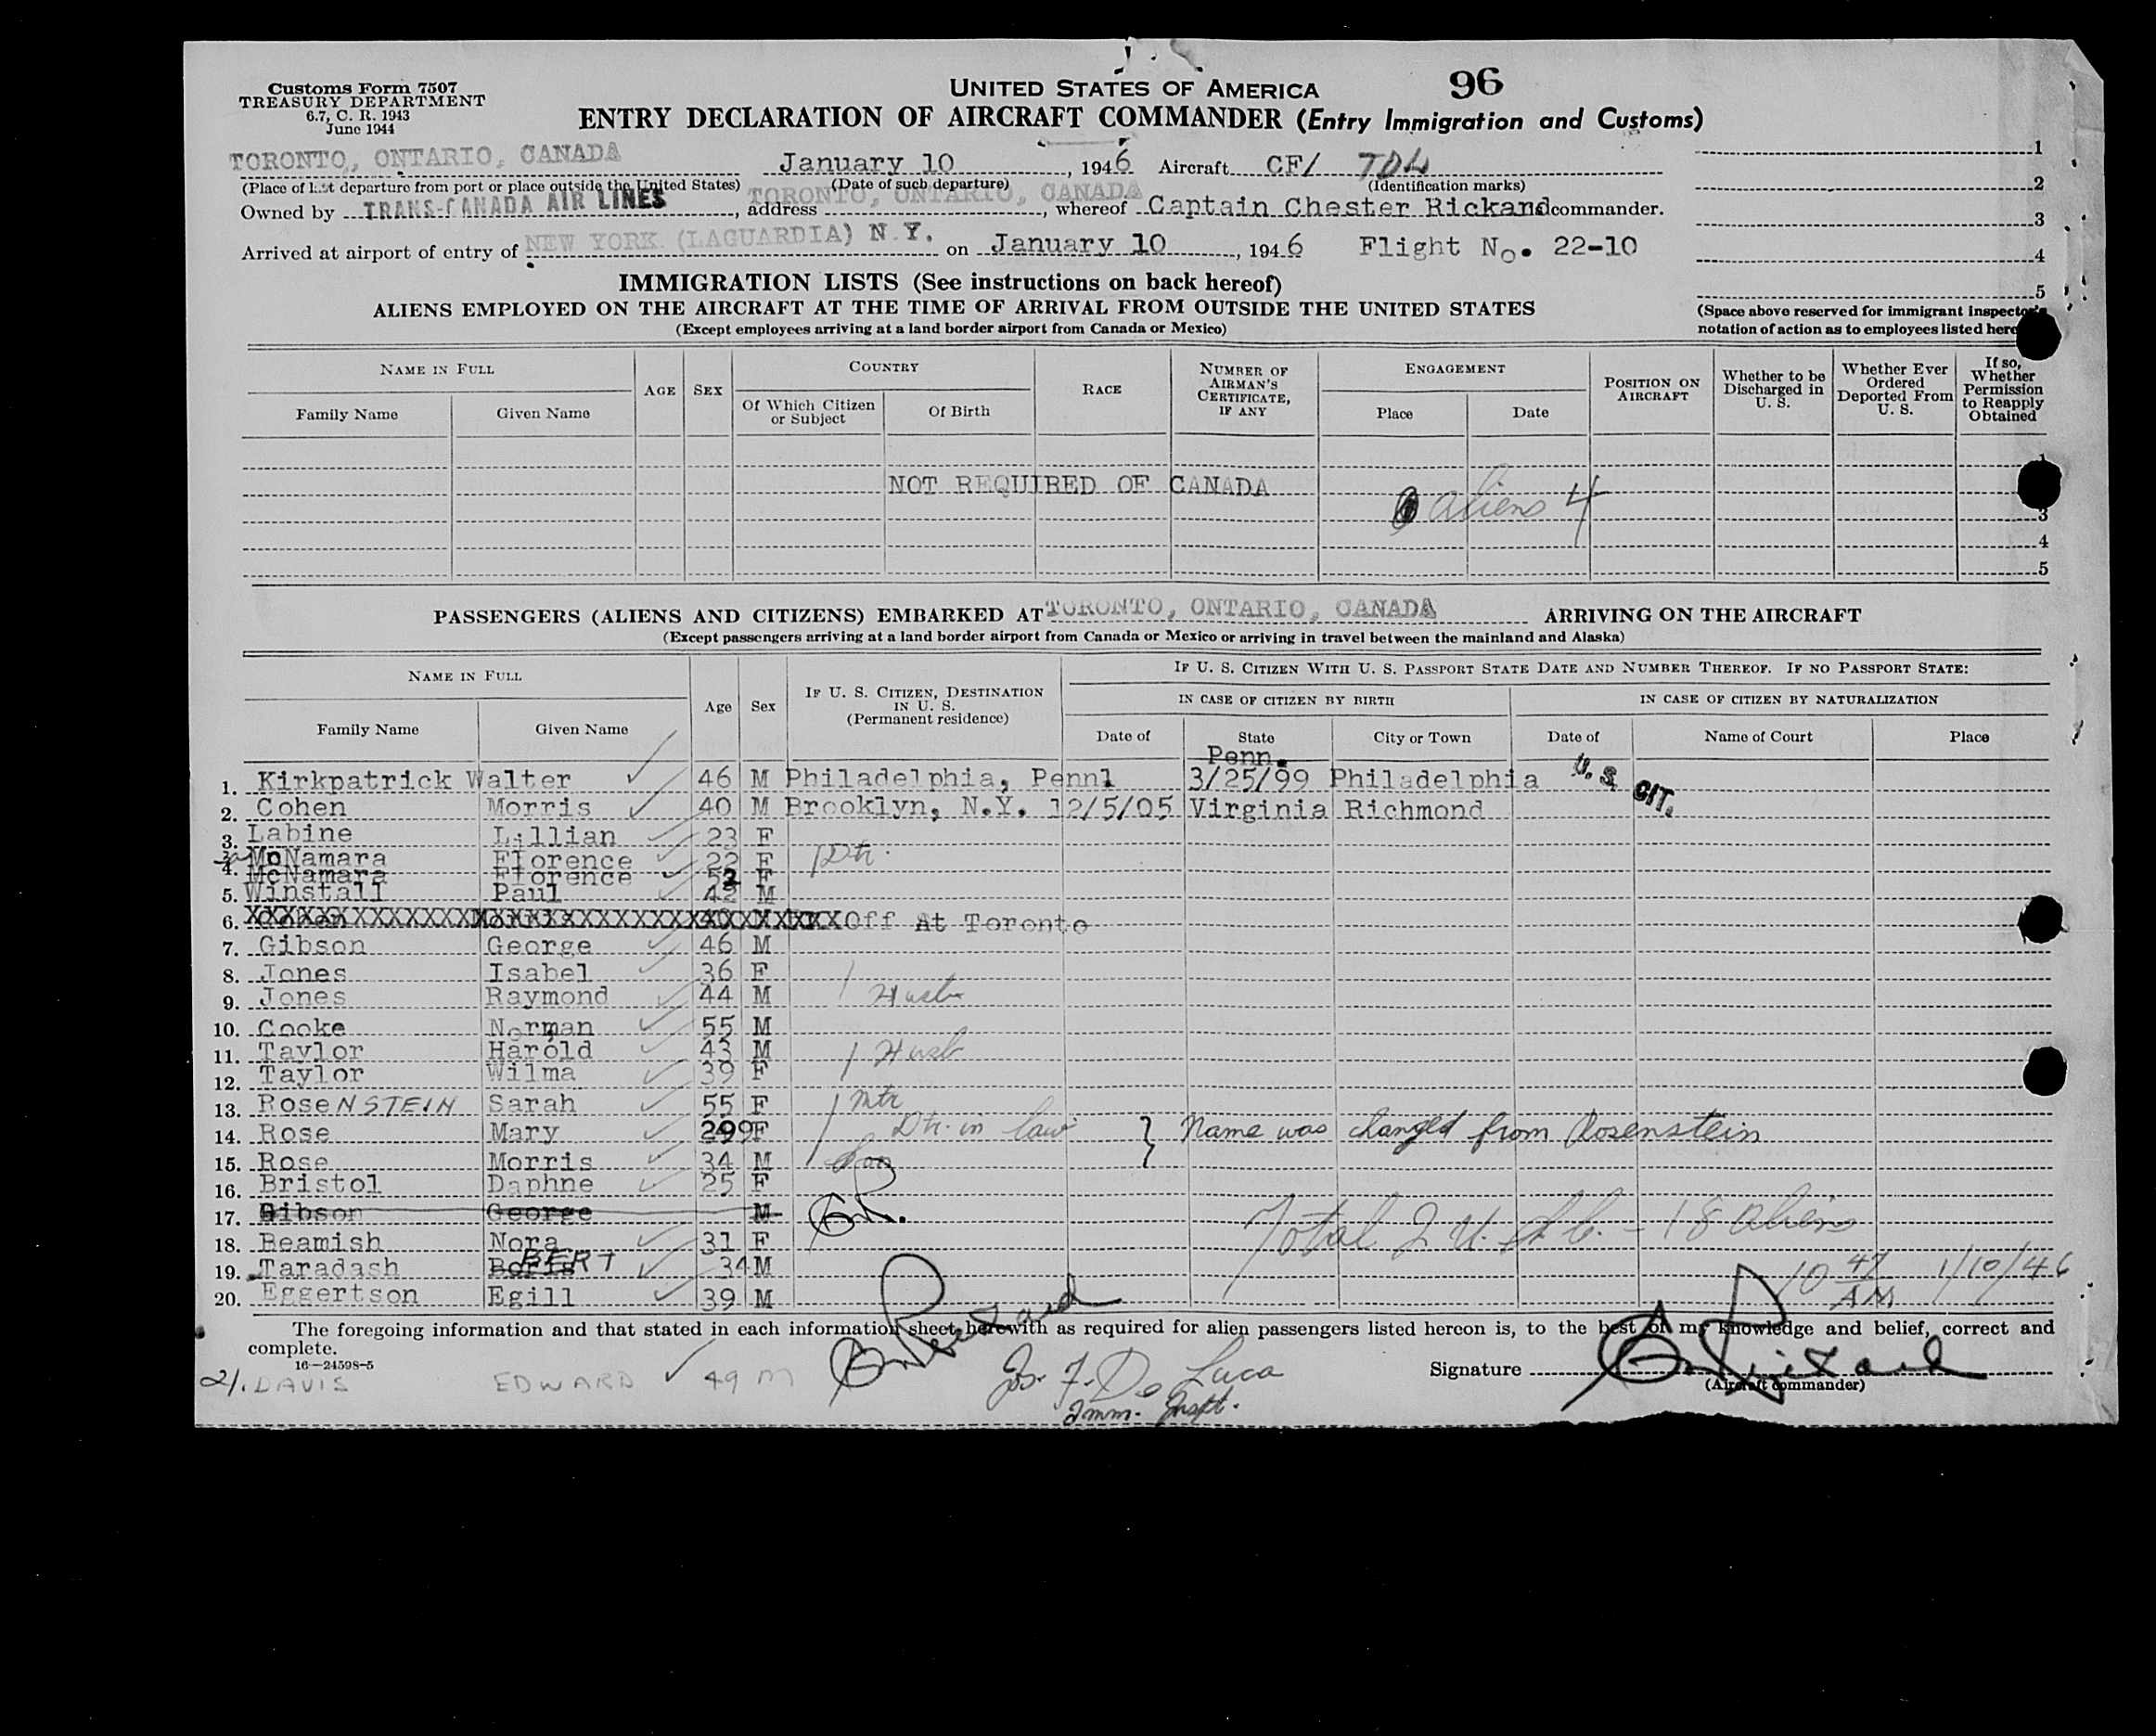 Customs Form 7507
TREASURY DEPARTMENT
6.7, C. R. 1943
June 1944
UNITED STATES OF AMERICA 96
ENTRY DECLARATION OF AIRCRAFT COMMANDER (Entry Immigration and Customs)
TORONTO, ONTARIO, CANADA January 10, 1946 Aircraft CF/ TDL
(Place of last departure from port or place outside the United States) (Date of such departure) (Identification marks)
Owned by TRANS-CANADA AIR LINES, address TORONTO, ONTARIO, CANADA, whereof Captain Chester Rickand commander.
Arrived at airport of entry of NEW YORK (LAGUARDIA) N.Y. on January 10, 1946 Flight No. 22-10
1
2
3
4
5
IMMIGRATION LISTS (See instructions on back hereof)
ALIENS EMPLOYED ON THE AIRCRAFT AT THE TIME OF ARRIVAL FROM OUTSIDE THE UNITED STATES
(Except employees arriving at a land border airport from Canada or Mexico)
(Space above reserved for immigrant inspector's
notation of action as to employees listed here
NAME IN FULL AGE SEX COUNTRY RACE NUMBER OF AIRMAN'S CERTIFICATE, IF ANY ENGAGEMENT POSITION ON AIRCRAFT Whether to be Discharged in U. S. Whether Ever Ordered Deported From U. S. If so, Whether Permission to Reapply Obtained
Family Name Given Name Of Which Citizen or Subject Of Birth Place Date
1
NOT REQUIRED OF CANADA
aliens 4
3
4
5
PASSENGERS (ALIENS AND CITIZENS) EMBARKED AT TORONTO, ONTARIO, CANADA ARRIVING ON THE AIRCRAFT
(Except passengers arriving at a land border airport from Canada or Mexico or arriving in travel between the mainland and Alaska)
NAME IN FULL Age Sex IF U. S. CITIZEN, DESTINATION IN U. S. (Permanent residence) IF U. S. CITIZEN WITH U. S. PASSPORT STATE DATE AND NUMBER THEREOF. IF NO PASSPORT STATE:
IN CASE OF CITIZEN BY BIRTH IN CASE OF CITIZEN BY NATURALIZATION
Family Name Given Name Date of State City or Town Date of Name of Court Place
Penn.
1. Kirkpatrick Walter 46 M Philadelphia, Penn1 3/25/99 Philadelphia U. S. CIT.
2. Cohen Morris 40 M Brooklyn, N.Y. 12/5/05 Virginia Richmond
3. Labine Lillian 23 F
3a McNamara Florence 22 F Dtr.
4. McNamara Florence 52 F
5. Winstall Paul 42 M
6. Cohen Morris 40 M Off At Toronto
7. Gibson George 46 M
8. Jones Isabel 36 F
9. Jones Raymond 44 M Husb
10. Cooke Norman 55 M
11. Taylor Harold 43 M Husb
12. Taylor Wilma 39 F
13. RoseNSTEIN Sarah 55 F Mtr
14. Rose Mary 299F Dtr. in law } Name was changed from Rosenstein
15. Rose Morris 34 M Son
16. Bristol Daphne 25 F
17. Gibson George M
18. Beamish Nora 31 F Total 2 U. S. C. - 18 aliens
19. Taradash Boris BERT 34 M 10 47 AM 1/10/46
20. Eggertson Egill 39 M
The foregoing information and that stated in each information sheet herewith as required for alien passengers listed hereon is, to the best of my knowledge and belief, correct and
complete.
16—24598-5
21. DAVIS EDWARD 49 M
Jos. F. De Luca
Imm. Inspt.
Signature
(Aircraft commander)